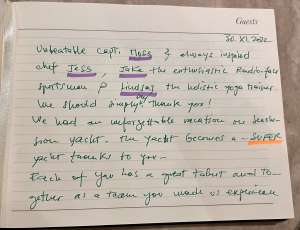 Guests
30. XI. 2022
Unbeatable capt. Moss & always inspired
chef Jess, Jake the enthusiastic Radio-face
sportsman & Lindsay the holistic yoga trainer
We should simply say thank you!
We had an unforgettable vacation on
yacht. The yacht becomes a - SUPER
yacht thanks to you -
Each of you has a great talent and to-
gether as a team you made us experience